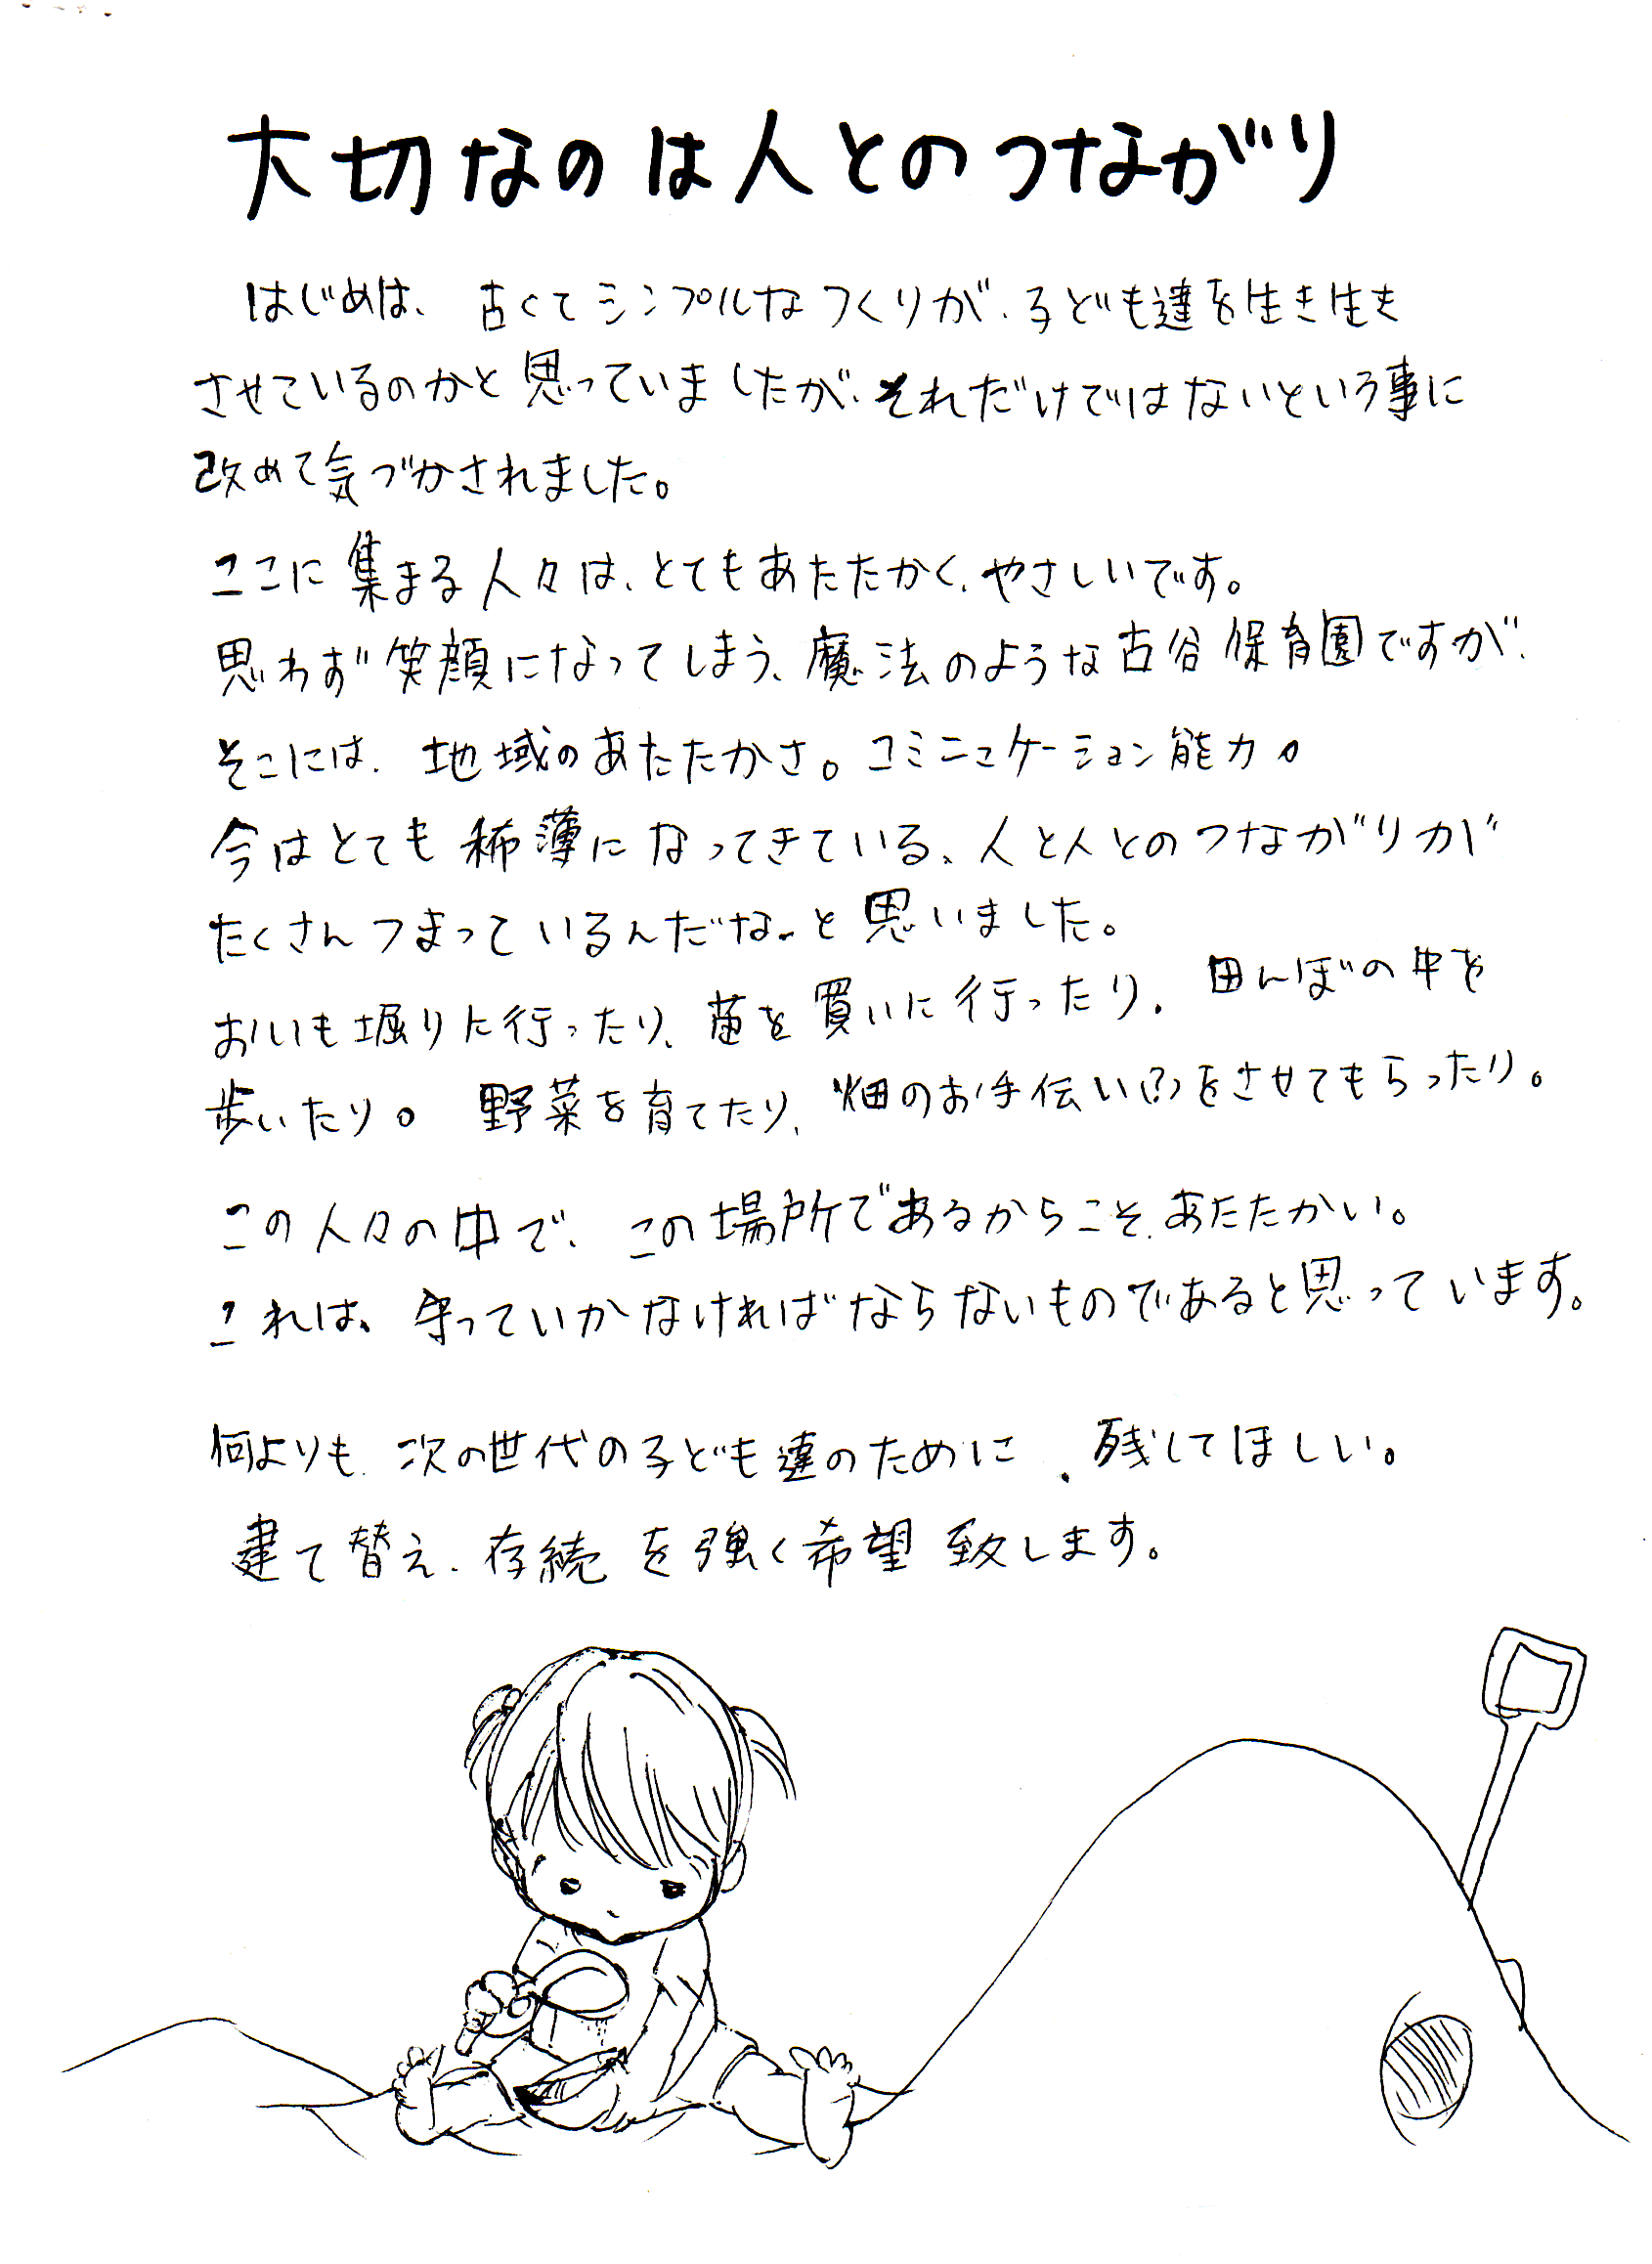 大切なのは人とのつながり
はじめは、古くてシンプルなつくりが、子ども達を生き生き
させているのかと思っていましたが、それだけではないという事に
改めて気づかされました。
ここに集まる人々は、とてもあたたかく、やさしいです。
思わず笑顔になってしまう、魔法のような古谷保育園ですが、
そこには、地域のあたたかさ。コミニュケーション能力。
今はとても稀薄になってきている、人と人とのつながりが
たくさんつまっているんだな。と思いました。
おいも堀りに行ったり、苗を買いに行ったり、田んぼの中を
歩いたり。野菜を育てたり、畑のお手伝い(?)をさせてもらったり。
この人々の中で、この場所であるからこそ、あたたかい。
これは、守っていかなければならないものであると思っています。
何よりも、次の世代の子ども達のために、残してほしい。
建て替え、存続を強く希望致します。